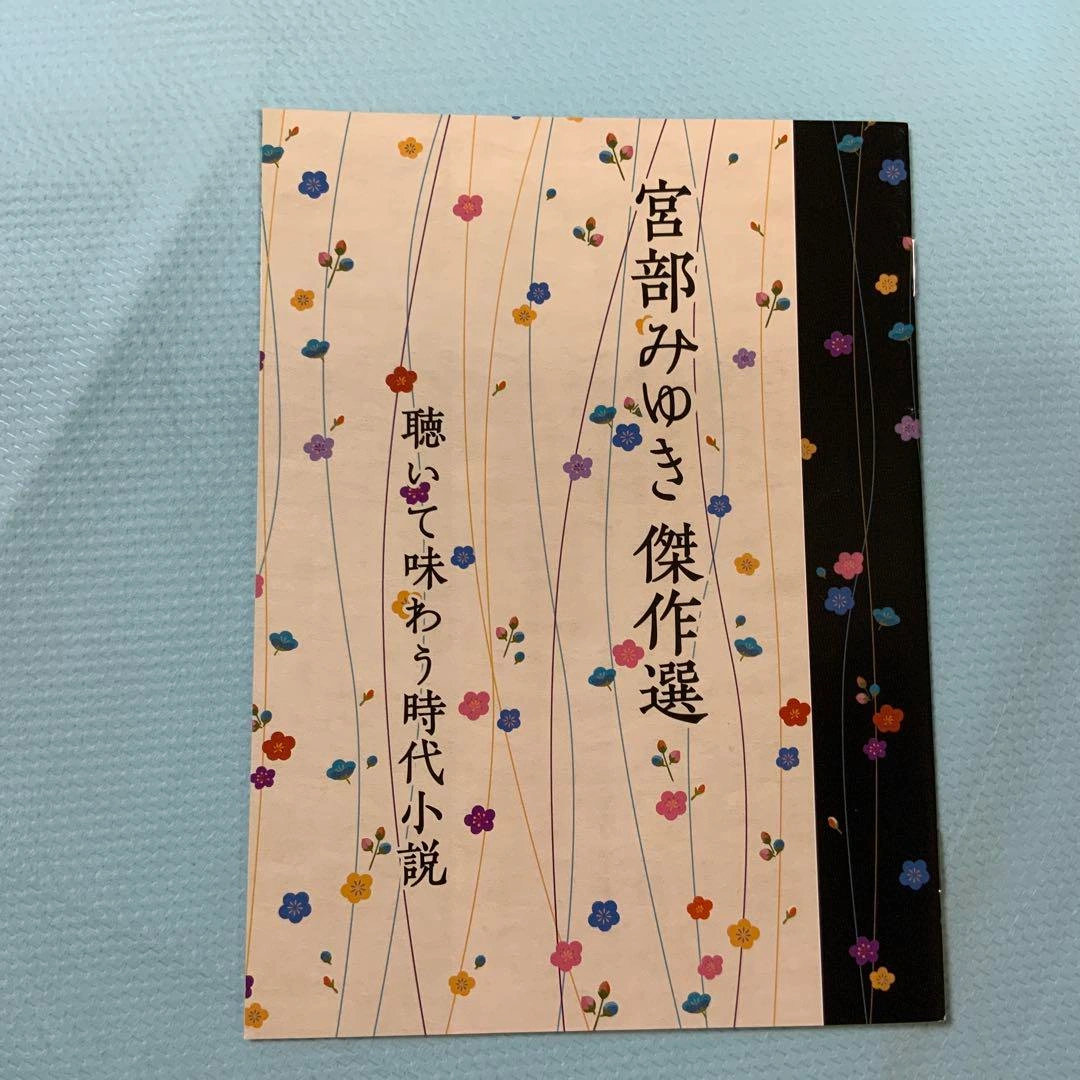 宮部みゆき 傑作選
聴いて味わう時代小説